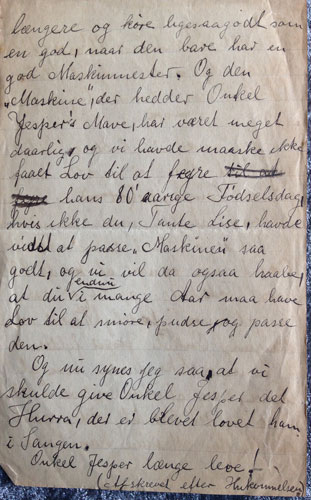 længere og køre ligesaagodt som
en god, naar den bare har en
god Maskinmester. Og den
„Maskine", der hedder Onkel
Jesper's Mave, har været meget
daarlig, og vi havde maaske ikke
faaet Lov til at fejre til at
hans 80' aarige Fødselsdag,
hvis ikke du, Tante Lise, havde
vidst at passe „Maskinen" saa
godt, og vi vil da ogsaa haabe,
at du i endnu mange Aar maa have
Lov til at smøre, pudse, og passe
den.
Og nu synes jeg saa, at vi
skulde give Onkel Jesper det
Hurra, der er blevet lovet ham
i Sangen.
Onkel Jesper længe leve!
(Afskrevet efter Hukommelsen)